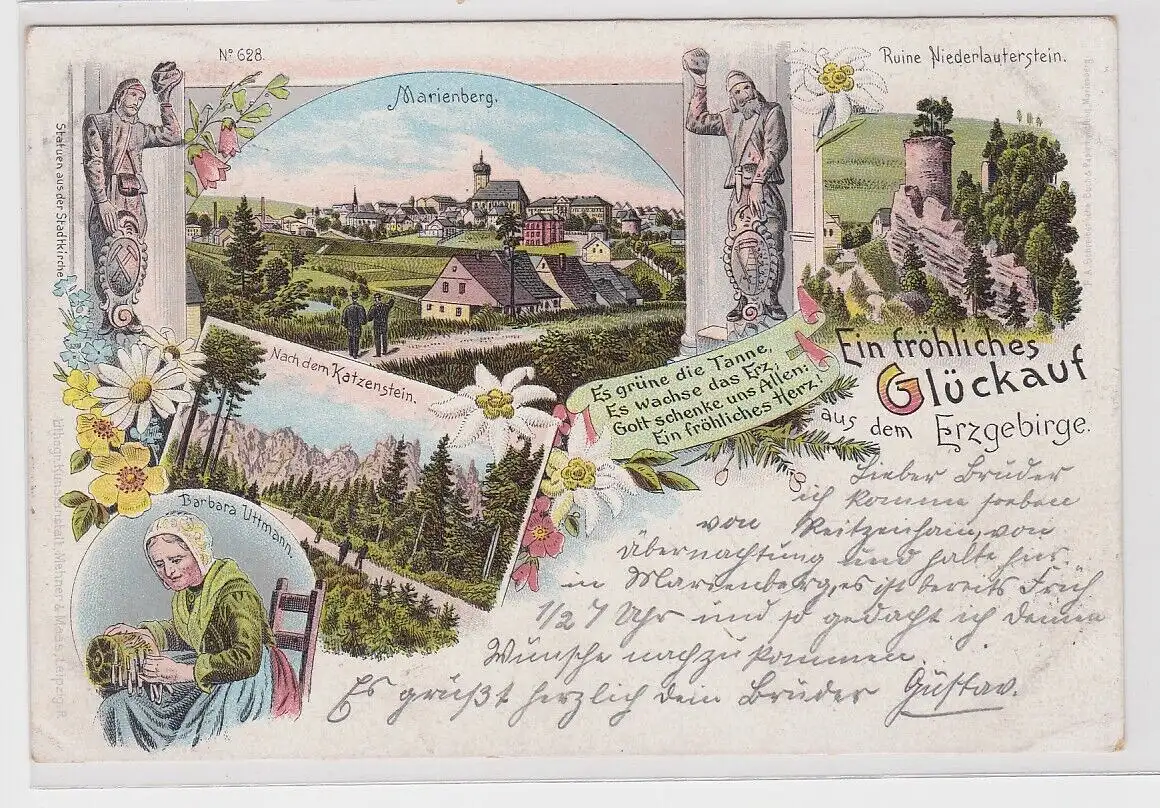 Nº 628.
Marienberg.
Ruine Niederlauterstein.
Statuen aus der Stadtkirche
Nach dem Katzenstein.
Barbara Uttmann.
Es grüne die Tanne,
Es wachse das Erz,
Gott schenke uns Allen:
Ein fröhliches Herz!
Ein fröhliches
Glückauf
aus dem Erzgebirge.
Lieber Bruder
ich komme soeben
von Reitzenhain, von
Übernachtung und halte hier
in Marienberg, es ist bereits Früh
1/2 7 Uhr und so gedacht ich deinen
Wünsche nachzukommen.
Es grüßt herzlich dein Bruder Gustav.
Lithogr. Kunstanstalt, Mehner & Maas, Leipzig-R.